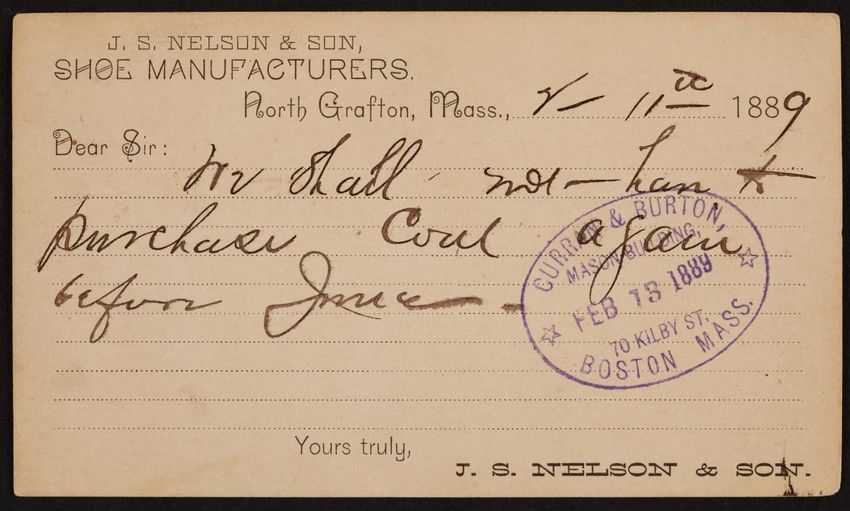 J. S. NELSON & SON,
SHOE MANUFACTURERS.
North Grafton, Mass., 2 – 11th 1889
Dear Sir:
We shall not – have to
purchase Coal again
before June –
CURRAN & BURTON,
MASON BUILDING,
FEB 13 1889
70 KILBY ST.
BOSTON MASS.
Yours truly,
J. S. NELSON & SON.